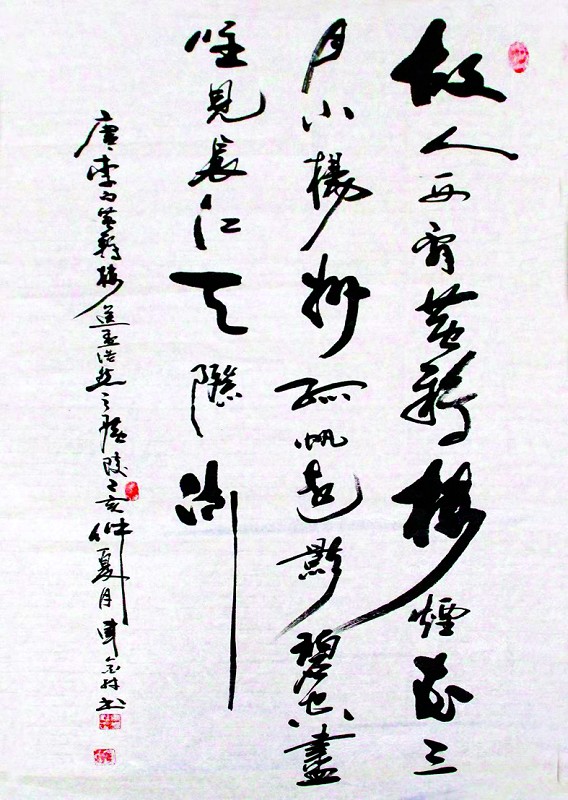 故人西辭黃鶴樓煙花三
月下揚州孤帆遠影碧空盡
唯見長江天際流
唐李白黃鶴樓送孟浩然之廣陵己亥仲夏月車書